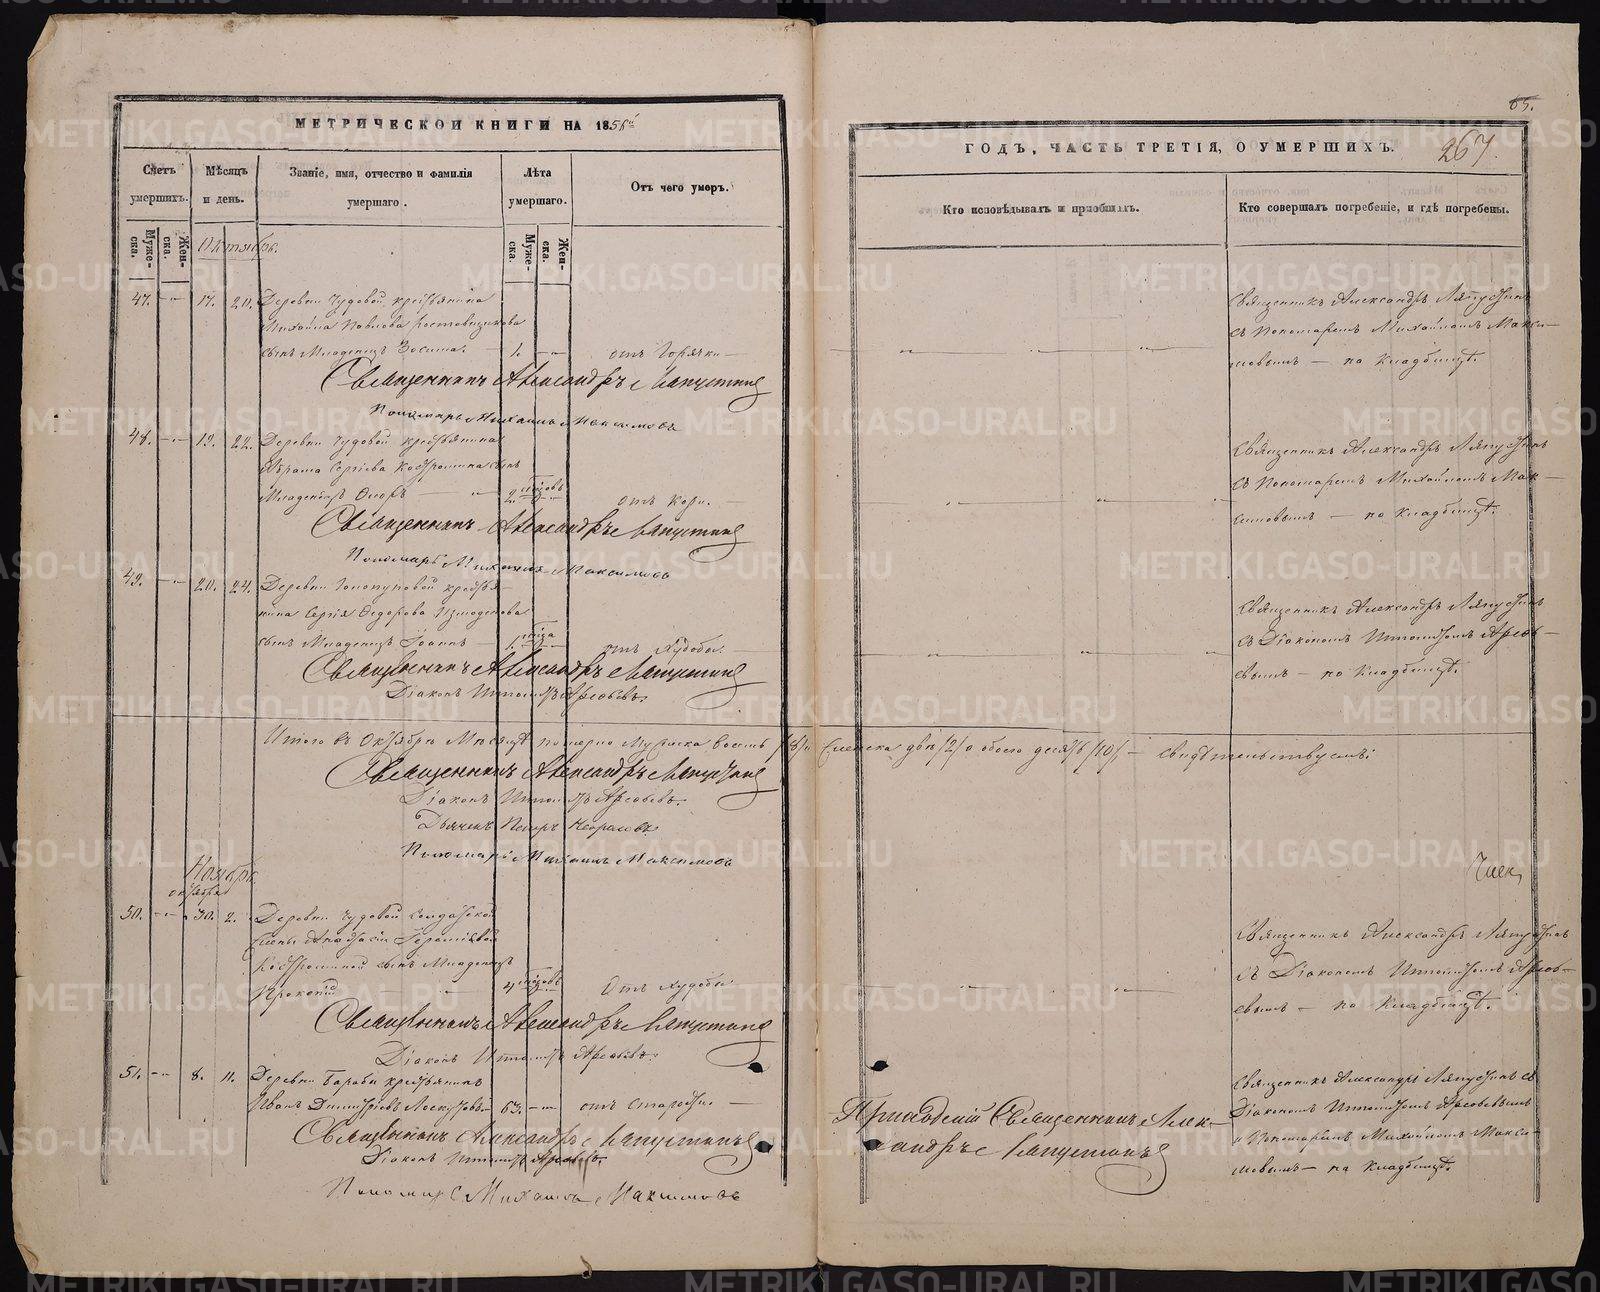 МЕТРИЧЕСКОЙ КНИГИ НА 1856й
Счетъ умершихъ.
Мѣсяцъ и день.
Званіе, имя, отчество и фамилія умершаго.
Лѣта умершаго.
Отъ чего умеръ.
Муже-ска.
Жен-ска.
Муже-ска.
Жен-ска.
Октябрь.
47. 17. 20. Деревни Чудовой крестьянина
Михаила Павлова
сынъ Младенецъ Зосима. 1. отъ Горячки
Священникъ Александръ Ляпустинъ
Пономарь Михаилъ Максимовъ
48. 19. 22. Деревни Чудовой крестьянина
Сергіева Костромина сынъ
Младенецъ Ѳеодоръ 2. мѣсяцовъ отъ Кори.
Священникъ Александръ Ляпустинъ
Пономарь Михаилъ Максимовъ
49. 20. 24. Деревни крестья-
нина Сергія Ѳедорова Измоденова
сынъ Младенецъ Іоаннъ 1. мѣсяца отъ Худобы.
Священникъ Александръ Ляпустинъ
Діаконъ Ипполитъ
Итого въ Октябрѣ Мѣсяцѣ померло Мужеска восемь /8/ и
Священникъ Александръ Ляпустинъ
Діаконъ Ипполитъ
Дьячекъ Петръ
Пономарь Михаилъ Максимовъ
Ноябрь
октября
50. 30. 2. Деревни Чудовой солдатской
жены Анастасіи
Костроминой сынъ Младенецъ
Прокопій 4 мѣсяцовъ Отъ худобы
Священникъ Александръ Ляпустинъ
Діаконъ Ипполитъ
51. 8. 11. Деревни Барабы крестьянинъ
Иванъ Димитріевъ Лоскутовъ 63. отъ старости.
Священникъ Александръ Ляпустинъ
Діаконъ Ипполитъ
Пономарь Михаилъ Максимовъ
65.
ГОДЪ, ЧАСТЬ ТРЕТІЯ, О УМЕРШИХЪ.
267.
Кто исповѣдывалъ и пріобщалъ.
Кто совершалъ погребеніе, и гдѣ погребены.
Священникъ Александръ Ляпустинъ
съ Пономаремъ Михаиломъ Макси-
мовымъ — на Кладбищѣ.
Священникъ Александръ Ляпустинъ
съ Пономаремъ Михаиломъ Мак-
симовымъ — на Кладбищѣ.
Священникъ Александръ Ляпустинъ
съ Діакономъ Ипполитомъ
на Кладбищѣ.
Женска двѣ /2/ а обоего десять /10/, — свидѣтельствуемъ:
Священникъ Александръ Ляпустинъ
съ Діакономъ Ипполитомъ
на Кладбищѣ.
Священникъ Александръ Ляпустинъ съ
Діакономъ Ипполитомъ
и Пономаремъ Михаиломъ Макси-
мовымъ — на Кладбищѣ.
Приходскій Священникъ Алек-
сандръ Ляпустинъ
METRIKI.GASO-URAL.RU